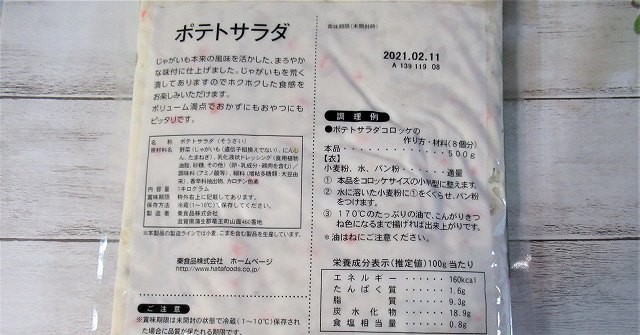 ポテトサラダ
じゃがいも本来の風味を活かした、まろやか
な味付に仕上げました。じゃがいもを荒く
潰してありますのでホクホクした食感を
お楽しみいただけます。
ボリューム満点でおかずにもおやつにも
ピッタリです。
名 称 ポテトサラダ(そうざい)
原材料名 野菜(じゃがいも(遺伝子組換えでない)、にんじ
ん、たまねぎ)、乳化液状ドレッシング(食用植物
油脂、砂糖、その他)(卵・乳成分・鶏肉を含む)/
調味料(アミノ酸等)、糊料(増粘多糖類:大豆由
来)、香辛料抽出物、カロテン色素
内 容 量 1キログラム
賞味期限 枠外右上に記載してあります。
保存方法 冷蔵(1~10℃)保存してください。
製 造 者 秦食品株式会社
滋賀県蒲生郡竜王町山面460番地
※本製品の製造ラインでは小麦、ごまを含む製品を生産しています。
秦食品株式会社 ホームページ
http://www.hatafoods.co.jp/
ご 注 意
※賞味期限は未開封の状態で冷蔵(1~10℃)保存され
た場合に品質が保たれる期限です。
賞味期限(未開封時)
2021.02.11
A 139 119 08
調 理 例
●ポテトサラダコロッケの
作り方・材料(8個分)
本品 500g
【衣】
小麦粉、水、パン粉 適量
① 本品をコロッケサイズの小判型に整えます。
② 水に溶いた小麦粉に①をくぐらせ、パン粉
をつけます。
③ 170℃のたっぷりの油で、こんがりきつ
ね色になるまで揚げれば出来上がりです。
*油はねにご注意ください。
栄養成分表示(推定値)100g当たり
エネルギー 160kcal
たんぱく質 1.6g
脂質 9.3g
炭水化物 18.9g
食塩相当量 0.8g